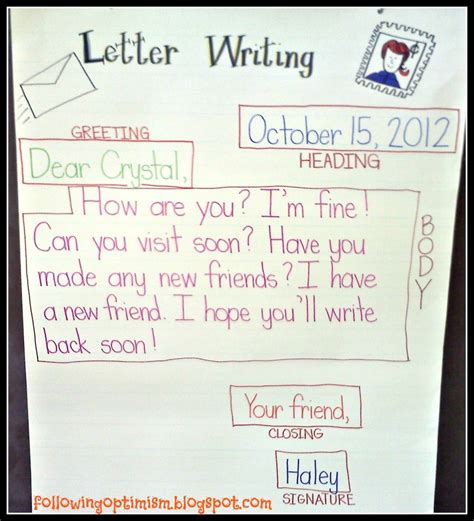 Letter Writing
October 15, 2012
HEADING
GREETING
Dear Crystal,
How are you? I'm fine!
Can you visit soon? Have you
made any new friends? I have
a new friend. I hope you'll write
back soon!
BODY
Your friend,
CLOSING
Haley
SIGNATURE
followingoptimism.blogspot.com